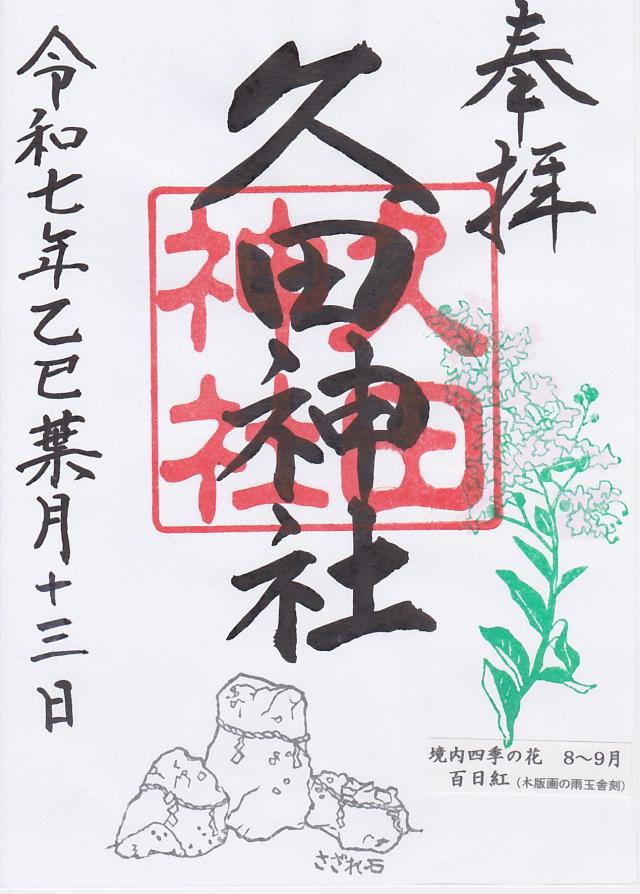 奉拝
久田神社
久田
神社
令和七年乙巳葉月十三日
境内四季の花 8～9月
百日紅(木版画の雨玉舎刻)
さざれ石